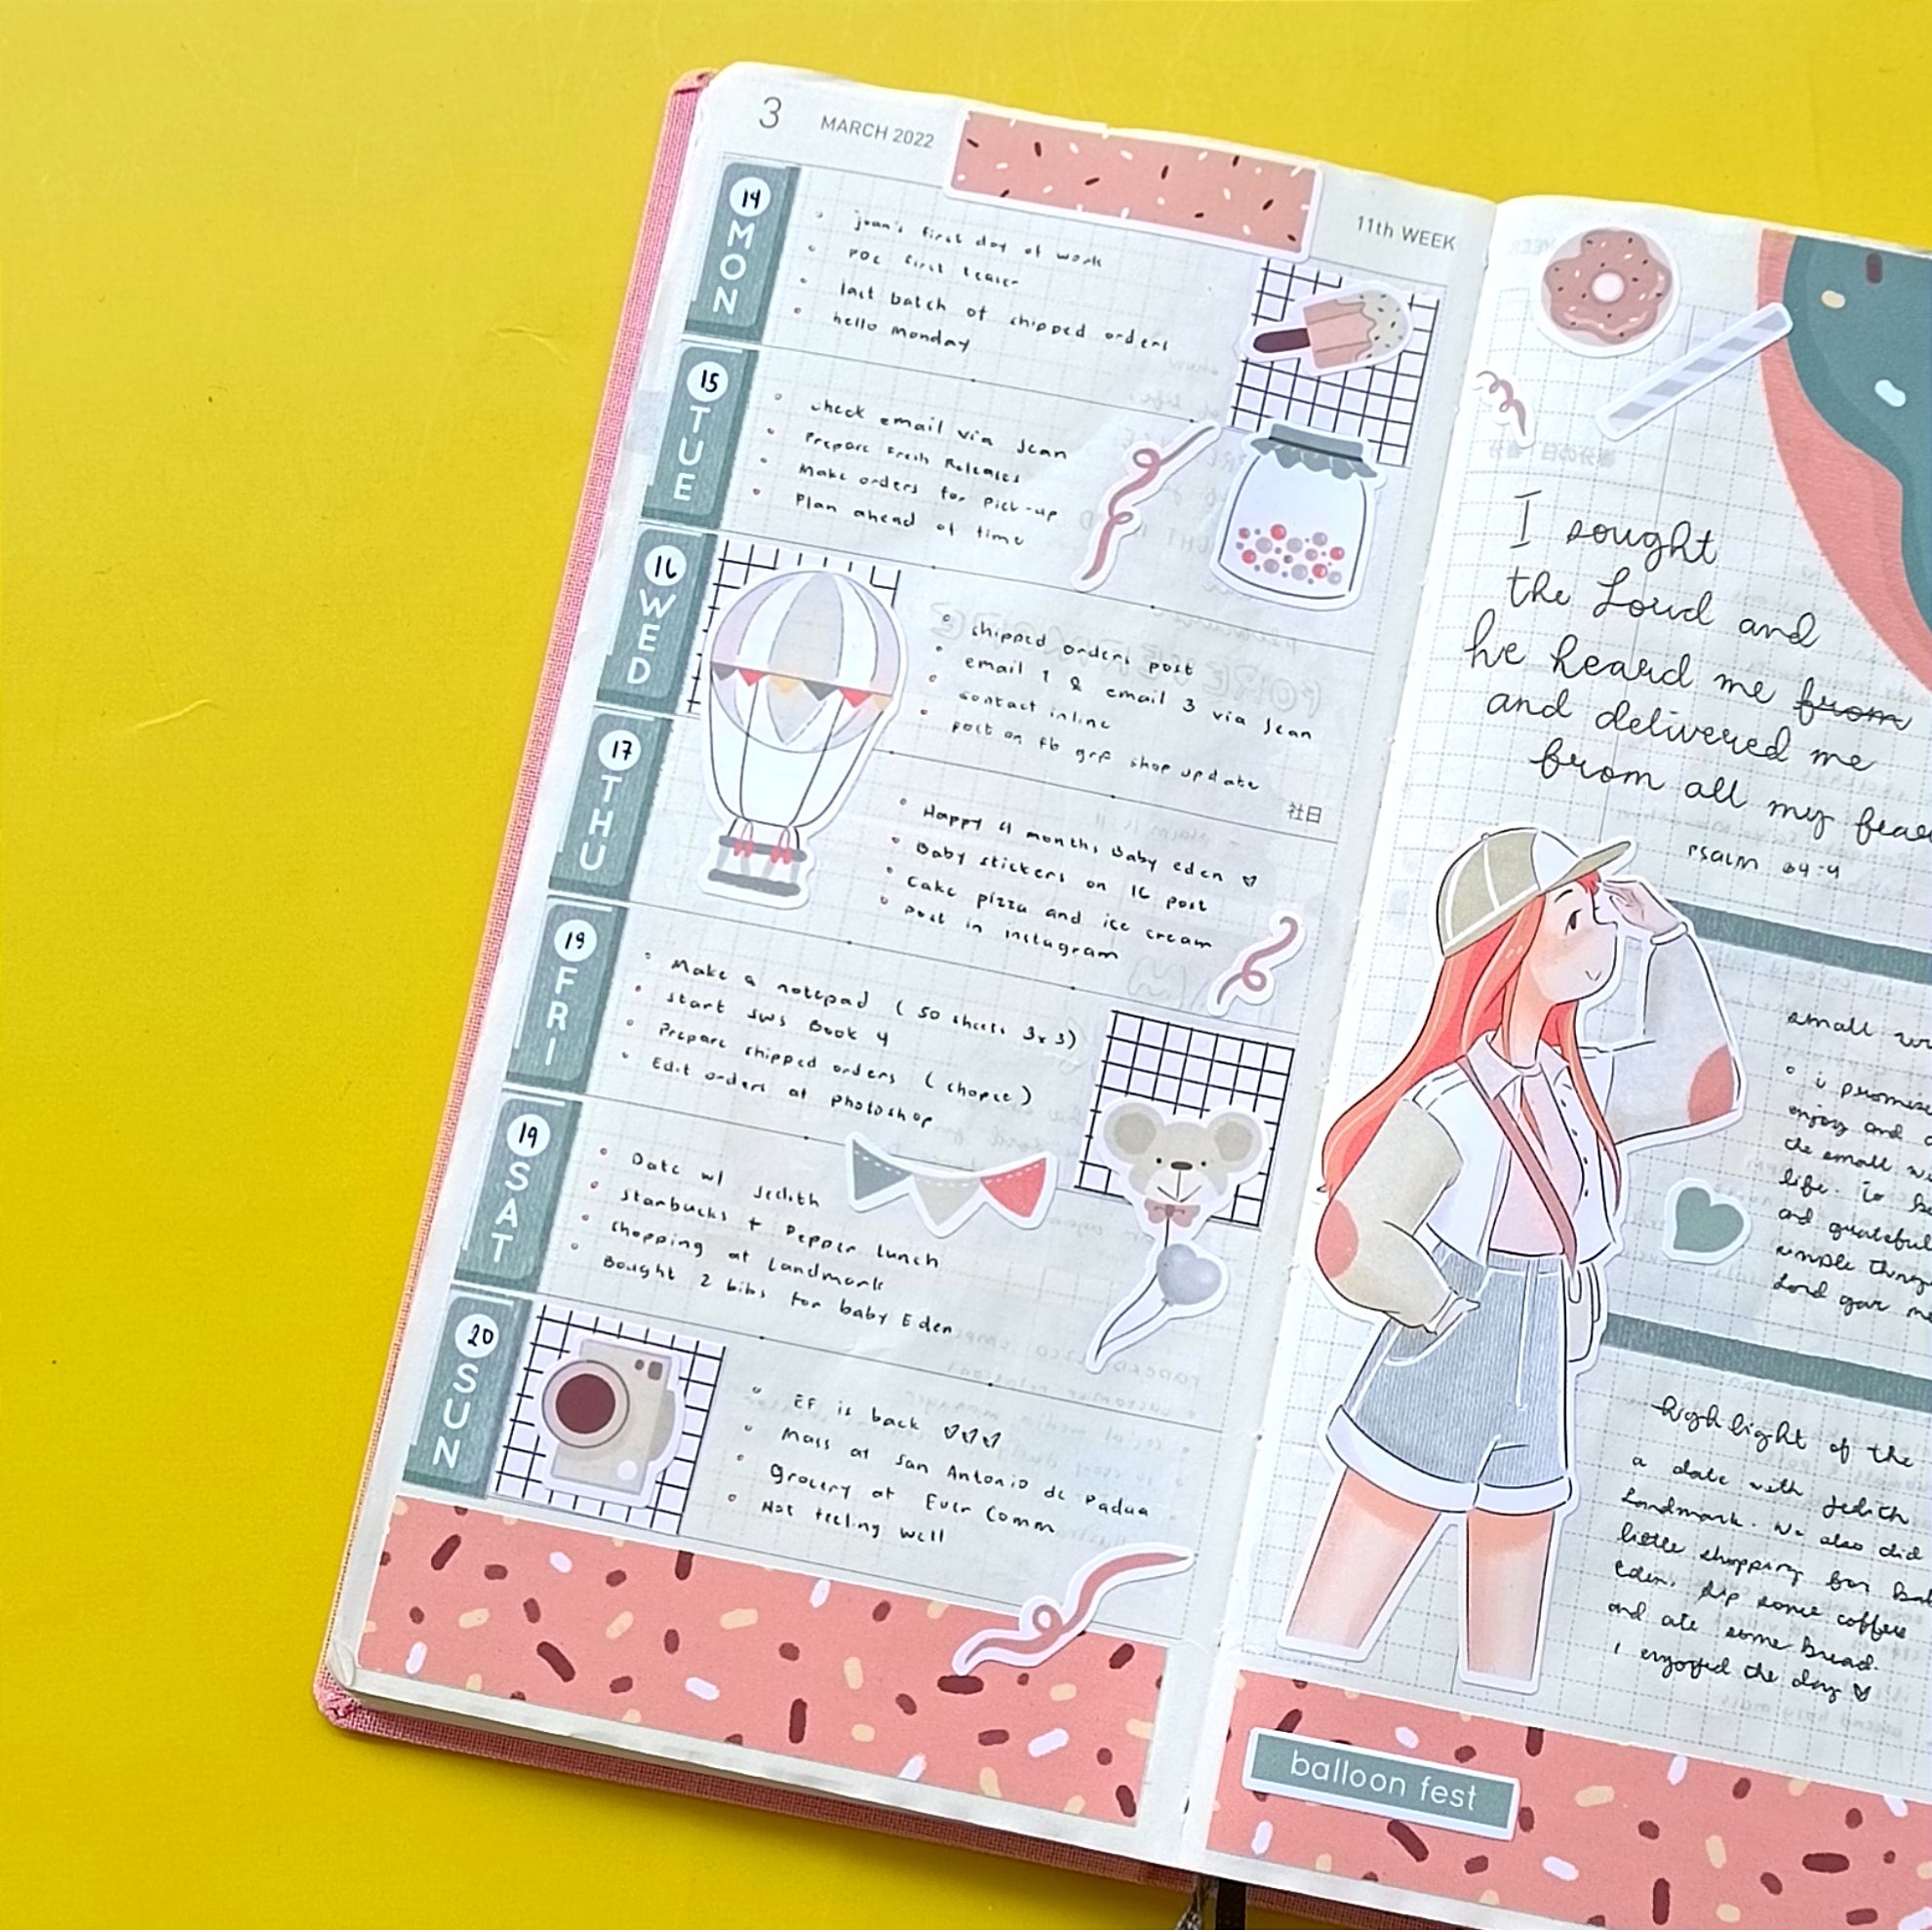 3 MARCH 2022
11th WEEK
14 MON
joan's first day of work
POC first teaser
last batch of shipped orders
hello monday
15 TUE
check email via Jean
Prepare Fresh Releases
Make orders for Pick-up
Plan ahead of time
16 WED
shipped orders post
email 1 & email 3 via Jean
contact inline
post on fb grp shop update
社日
17 THU
Happy 4 months Baby Eden
Baby stickers on 16 post
Cake pizza and ice cream
Post in instagram
19 FRI
Make a notepad (50 sheets 3x3)
start sws Book 4
Prepare shipped orders (chopee)
Edit orders at Photoshop
19 SAT
Date w/ Jedith
Starbucks + Pepper Lunch
shopping at Landmark
Bought 2 bibs for baby Eden
20 SUN
EF is back
Mass at San Antonio de Padua
grocery at Ever Comm
Not feeling well
I sought
the Lord and
he heard me from
and delivered me
from all my
Psalm 34-4
small
i promise
enjoy and
the small
life. to
and grateful
simple
Lord
highlight of the
a date with Jedith
Landmark. We also did
little shopping for
Eden, sip some coffee
and ate some bread.
I enjoyed the day
balloon fest